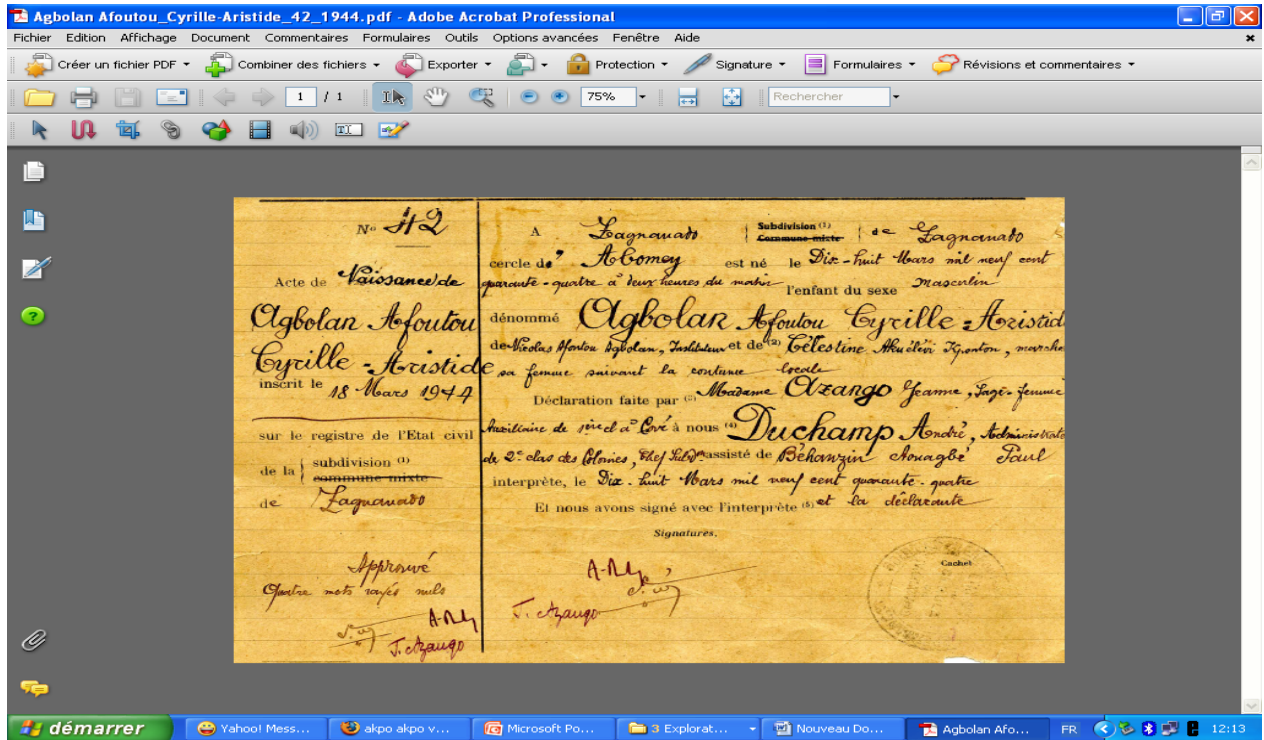 Agbolan Afoutou_Cyrille-Aristide_42_1944.pdf - Adobe Acrobat Professional
Fichier Edition Affichage Document Commentaires Formulaires Outils Options avancées Fenêtre Aide
Créer un fichier PDF Combiner des fichiers Exporter Protection Signature Formulaires Révisions et commentaires
1 / 1 75% Rechercher
N° 42
Acte de Naissance de
Agbolan Afoutou
Cyrille - Aristide
inscrit le
18 Mars 1944
sur le registre de l'Etat civil
de la subdivision (1)
commune mixte
de Zagnanado
Approuvé
Quatre mots rayés nuls
J. Azango
A Zagnanado Subdivision (1) Commune mixte de Zagnanado
cercle de Abomey est né le Dix-huit Mars mil neuf cent
quarante-quatre à deux heures du matin l'enfant du sexe masculin
dénommé Agbolan Afoutou Cyrille-Aristid
de Nicolas Afoutou Agbolan, Instituteur et de (2) Célestine
sa femme suivant la coutume locale
Déclaration faite par (3) Madame Azango Jeanne, Sage-femme
Auxiliaire de à Cové à nous (4) Duchamp André, Administrate
de 2e clas des Colonies, Chef assisté de Béhanzin Paul
interprète, le Dix-huit Mars mil neuf cent quarante-quatre
Et nous avons signé avec l'interprète (5) et la déclarante
Signatures.
J. Azango
Cachet
démarrer Yahoo! Mess... akpo akpo v... Microsoft Po... 3 Explorat... Nouveau Do... Agbolan Afo... FR 12:13